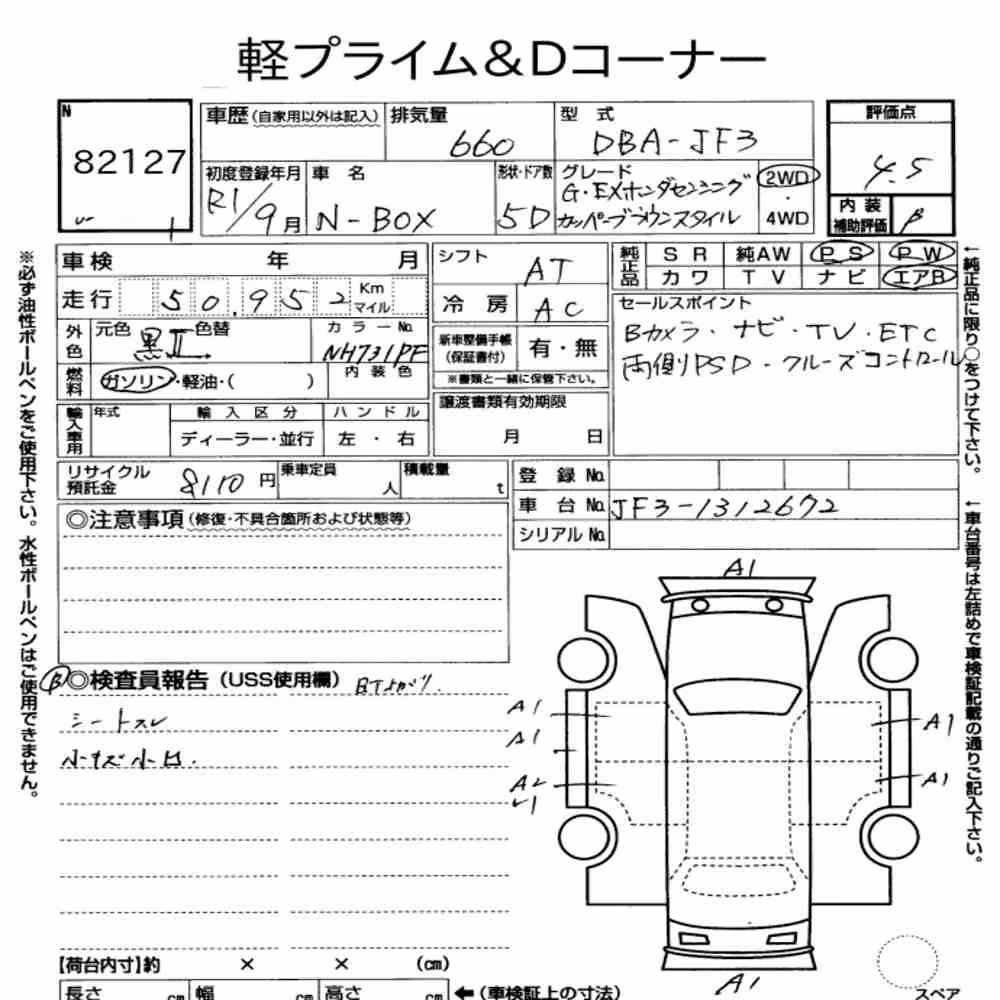 軽プライム&Dコーナー
N
82127
車歴 (自家用以外は記入)
排気量
660
型式
DBA-JF3
評価点
4.5
初度登録年月
R1/9月
車名
N-BOX
形状・ドア数
5D
グレード
G・EXホンダセンシング
カッパーブラウンスタイル
2WD
・
4WD
内装
補助評価
B
車検 年 月
シフト
AT
純正品
SR 純AW PS PW
カワ TV ナビ エアB
走行 50,952 Km
マイル
冷房
AC
セールスポイント
Bカメラ・ナビ・TV・ETC
両側PSD・クルーズコントロール
外色
元色
黒II
色替
カラーNo.
NH731PF
新車整備手帳
(保証書付)
有・無
※書類と一緒に保管下さい。
燃料
ガソリン・軽油・( )
内装色
輸入車用
年式
輸入区分
ハンドル
ディーラー・並行
左・右
譲渡書類有効期限
月 日
リサイクル
預託金
8110円
乗車定員
人
積載量
t
登録No.
車台No.
JF3-1312672
シリアルNo.
◎注意事項 (修復・不具合箇所および状態等)
B
◎検査員報告 (USS使用欄)
シートスレ
小キズ小凹.
A1
A1
A1
A2
A1
A1
A1
【荷台内寸】約 × × (cm)
長さ cm 幅 cm 高さ cm
←(車検証上の寸法)
スペア
※必ず油性ボールペンをご使用下さい。水性ボールペンはご使用できません。
←純正品に限り○をつけて下さい。
←車台番号は左詰めで車検証記載の通りご記入下さい。